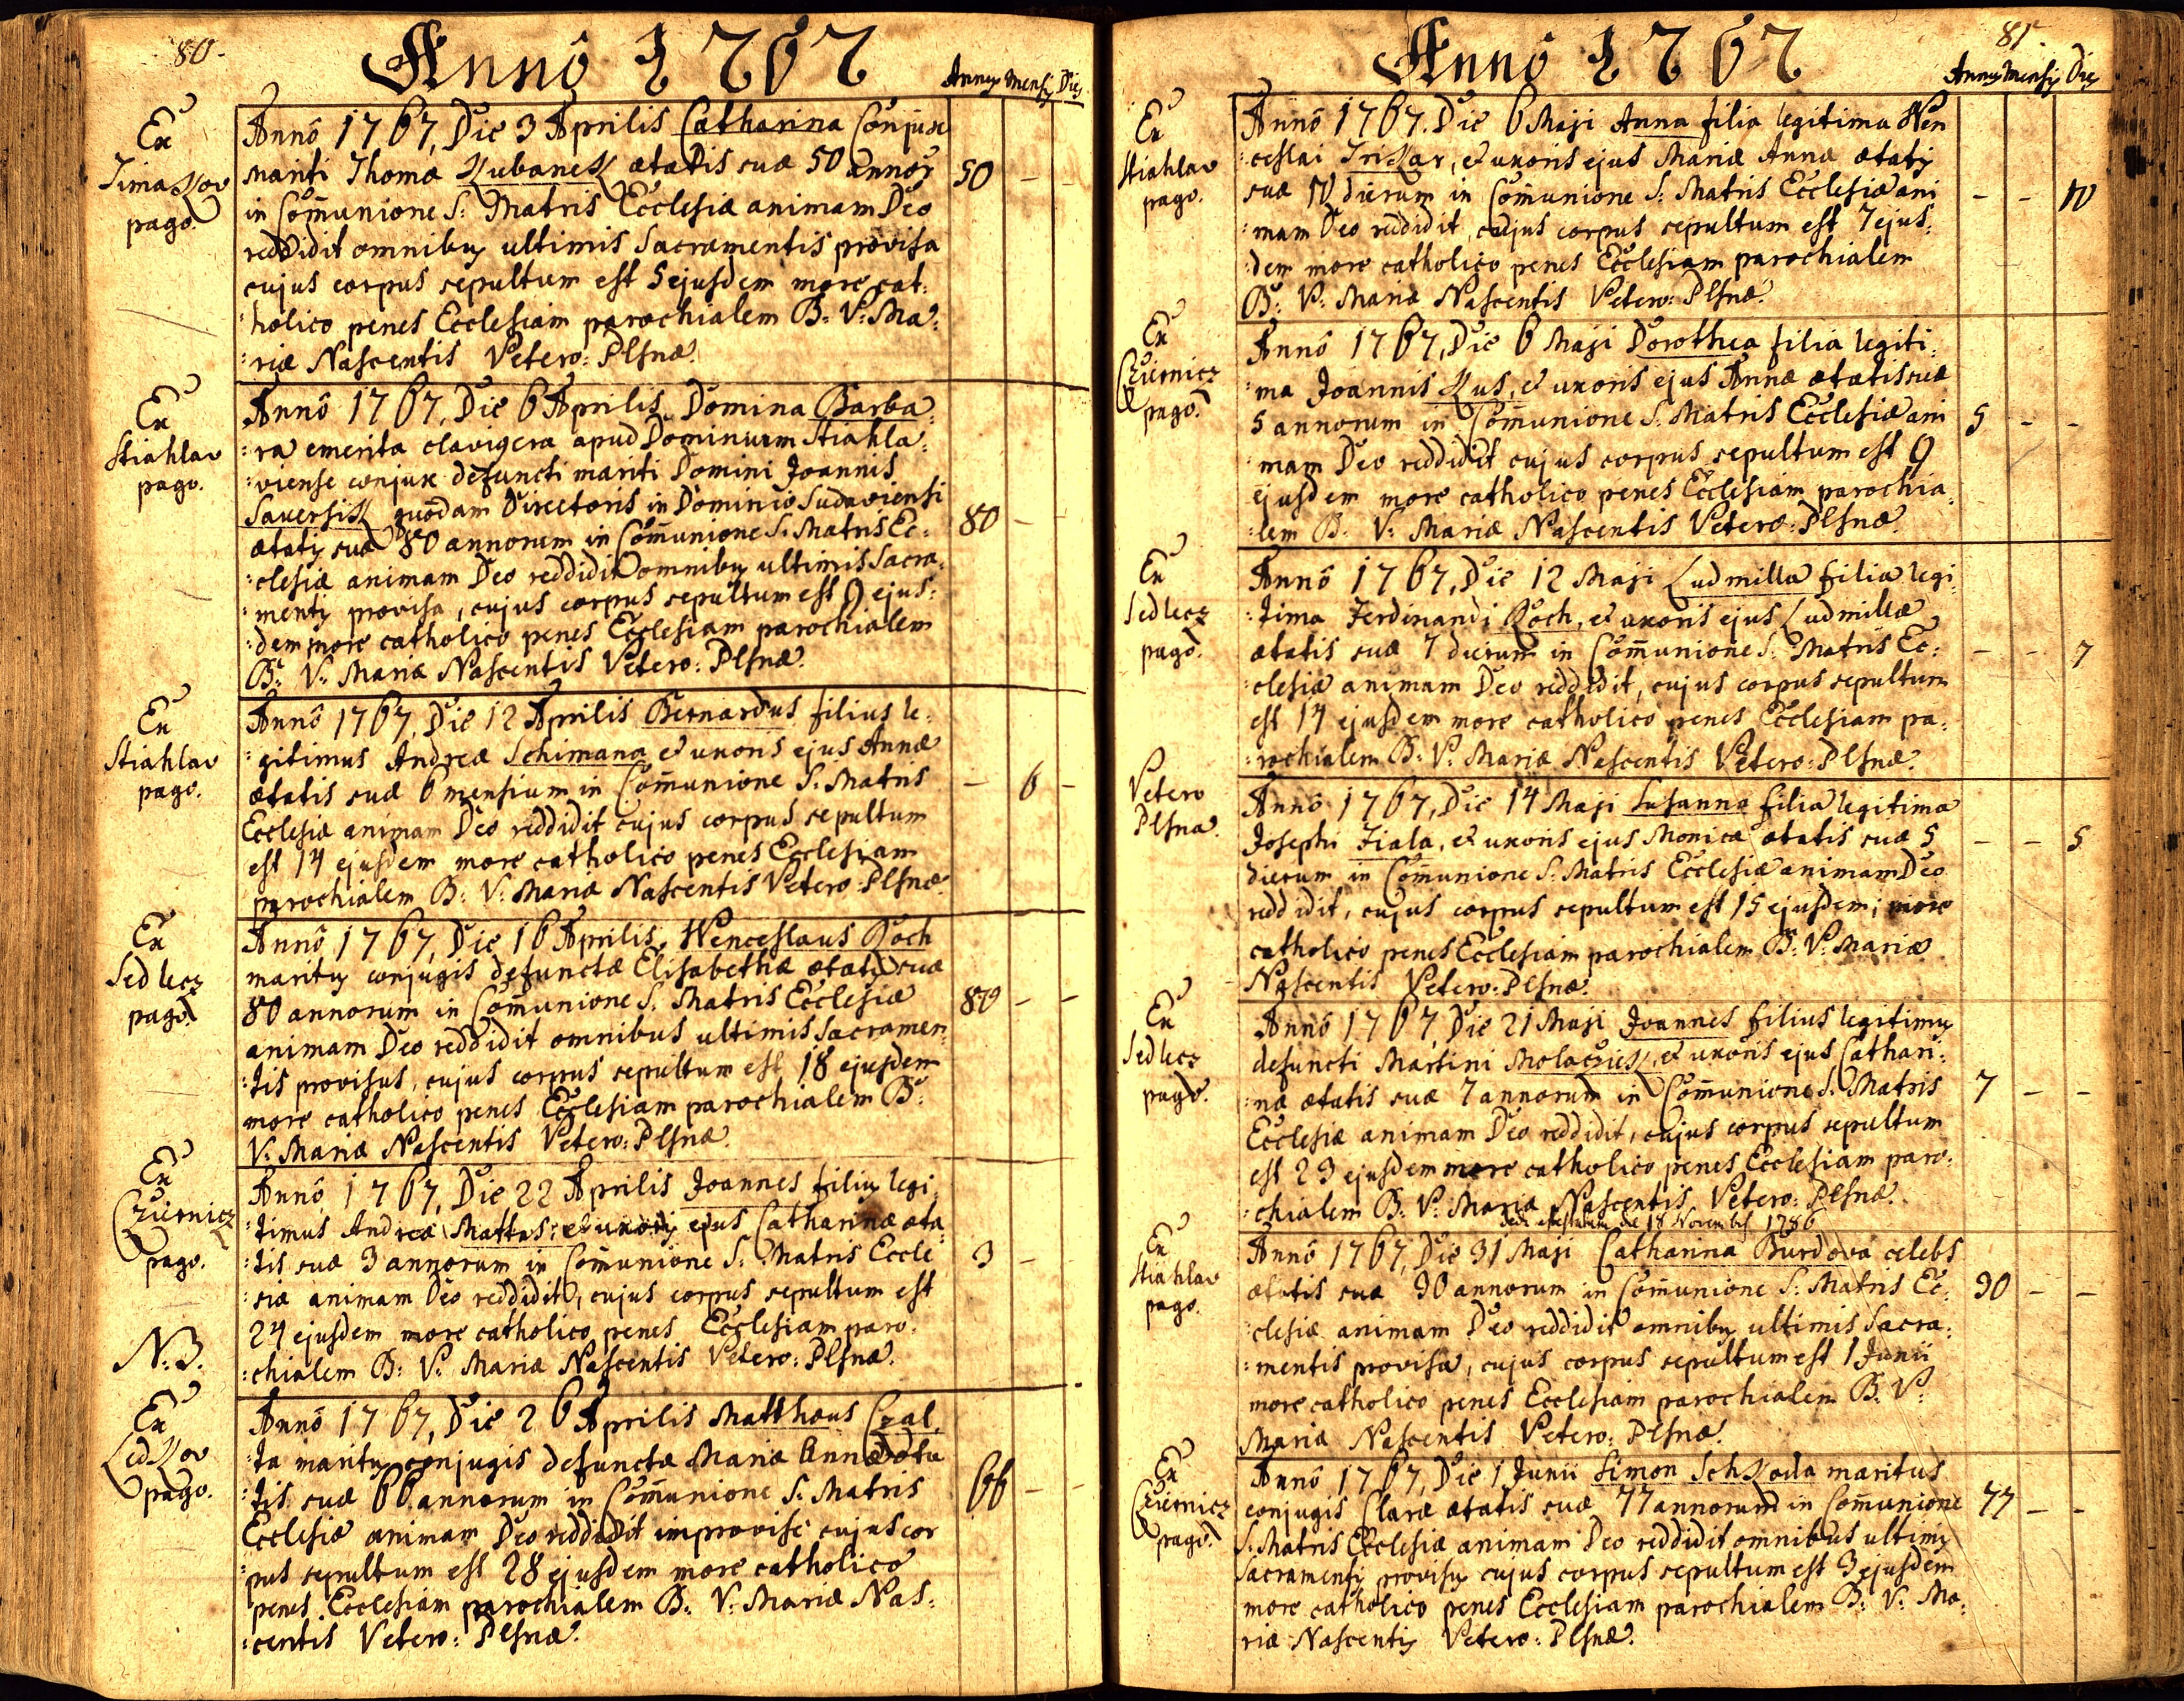 80.
Annô 1767
Annus Mensis Dies
Ex
Timakov
pago.
Annô 1767, Die 3 Aprilis Catharina Conjux
mariti Thomæ Kubanek ætatis suæ 50 annor̃
50 - -
in Com̃unione S: Matris Ecclesiæ animam Deo
reddidit omnibus ultimis Sacramentis provisa
cujus corpus sepultum est 5 ejusdem more cat:
:holico penes Ecclesiam parochialem B: V: Ma:
:riæ Nascentis Vetero: Plsnæ.
Ex
Stiahlav
pago.
Annô 1767, Die 6 Aprilis Domina Barba:
:ra emerita clavigera apud Dominium Stiahla:
:viense conjux defuncti mariti Domini Joannis
Saversik quondam Directoris in Dominio Sudaviensi
ætatis suæ 80 annorum in Com̃unione S: Matris Ec:
80 - -
:clesiæ animam Deo reddidit omnibus ultimis Sacra:
:mentis provisa, cujus corpus sepultum est 9 ejus:
:dem more catholico penes Ecclesiam parochialem
B: V: Mariæ Nascentis Vetero: Plsnæ.
Ex
Stiahlav
pago.
Annô 1767, Die 12 Aprilis Bernardus filius le:
:gitimus Andreæ Schimana et uxoris ejus Annæ
ætatis suæ 6 mensium in Com̃unione S: Matris
- 6 -
Ecclesiæ animam Deo reddidit cujus corpus sepultum
est 14 ejusdem more catholico penes Ecclesiam
parochialem B: V: Mariæ Nascentis Vetero: Plsnæ.
Ex
Sedlecz
pago.
Annô 1767, Die 16 Aprilis Wenceslaus Koch
maritus conjugis defunctæ Elisabethæ ætatis suæ
80 annorum in Com̃unione S: Matris Ecclesiæ
80 - -
animam Deo reddidit omnibus ultimis Sacramen:
:tis provisus, cujus corpus sepultum est 18 ejusdem
more catholico penes Ecclesiam parochialem B:
V: Mariæ Nascentis Vetero: Plsnæ.
Ex
Cziernicz
pago.
Annô 1767, Die 22 Aprilis Joannes filius legi:
:timus Andreæ Mattas: et uxoris ejus Catharinæ æta:
:tis suæ 3 annorum in Com̃unione S: Matris Eccle
3 -
:siæ animam Deo reddidit, cujus corpus sepultum est
24 ejusdem more catholico penes Ecclesiam paro:
:chialem B: V: Mariæ Nascentis Vetero: Plsnæ.
N:B.
Ex
Ledkov
pago.
Annô 1767, Die 26 Aprilis Matthæus Czal:
:ta maritus conjugis defunctæ Mariæ Annæ æta
:tis suæ 66 annorum in Com̃unione S: Matris
66 - -
Ecclesiæ animam Deo reddidit improvise cujus cor
:pus sepultum est 28 ejusdem more catholico
penes Ecclesiam parochialem B: V: Mariæ Nas:
:centis Vetero: Plsnæ.
81
Annô 1767
Annus Mensis Dies
Ex
Stiahlav
pago.
Annô 1767. Die 6 Maji Anna filia legitima Wen
:ceslai Trikar, et uxoris ejus Mariæ Annæ ætatis
suæ 10 dierum in Com̃unione S: Matris Ecclesiæ ani
- - 10
:mam Deo reddidit, cujus corpus sepultum est 7 ejus:
:dem more catholico penes Ecclesiam parochialem
B: V: Mariæ Nascentis Vetero: Plsnæ.
Ex
Cziernicz
pago.
Annô 1767, Die 6 Maji Dorothea filia legiti:
:ma Joannis Kus, et uxoris ejus Annæ ætatis suæ
5 annorum in Com̃unione S: Matris Ecclesiæ ani
5 - -
:mam Deo reddidit cujus corpus sepultum est 9
ejusdem more catholico penes Ecclesiam parochia:
:lem B: V: Mariæ Nascentis Vetero: Plsnæ.
Ex
Sedlecz
pago.
Annô 1767, Die 12 Maji Ludmilla filia legi:
:tima Ferdinandi Koch, et uxoris ejus Ludmillæ
ætatis suæ 7 dierum in Com̃unione S: Matris Ec:
- - 7
:clesiæ animam Deo reddidit, cujus corpus sepultum
est 14 ejusdem more catholico penes Ecclesiam pa:
:rochialem B: V: Mariæ Nascentis Vetero: Plsnæ.
Vetero
Plsna.
Annô 1767, Die 14 Maji Susanna filia legitima
Josephi Fiala, et uxoris ejus Monicæ ætatis suæ 5
- - 5
dierum in Com̃unione S: Matris Ecclesiæ animam Deo
reddidit, cujus corpus sepultum est 15 ejusdem; more
catholico penes Ecclesiam parochialem B: V: Mariæ
Nascentis Vetero: Plsnæ.
Ex
Sedlecz
pago.
Annô 1767, Die 21 Maji Joannes filius legitimus
defuncti Martini Molaczek, et uxoris ejus Cathari:
:næ ætatis suæ 7 annorum in Com̃unione S: Matris
7 - -
Ecclesiæ animam Deo reddidit, cujus corpus sepultum
est 23 ejusdem more catholico penes Ecclesiam paro:
:chialem B: V: Mariæ Nascentis Vetero: Plsnæ.
18 Novembris 1786
Ex
Stiahlav
pago.
Annô 1767, Die 31 Maji Catharina Burdova celebs
ætatis suæ 90 annorum in Com̃unione S: Matris Ec:
90 - -
:clesiæ animam Deo reddidit omnibus ultimis Sacra:
:mentis provisa, cujus corpus sepultum est 1 Junii
more catholico penes Ecclesiam parochialem B: V:
Mariæ Nascentis Vetero: Plsnæ.
Ex
Cziernicz
pago.
Annô 1767, Die 1 Junii Simon Schkoda maritus
conjugis Claræ ætatis suæ 77 annorum in Com̃unione
77 - -
S: Matris Ecclesiæ animam Deo reddidit omnibus ultimis
Sacramentis provisus cujus corpus sepultum est 3 ejusdem
more catholico penes Ecclesiam parochialem B: V: Ma:
riæ Nascentis Vetero: Plsnæ.